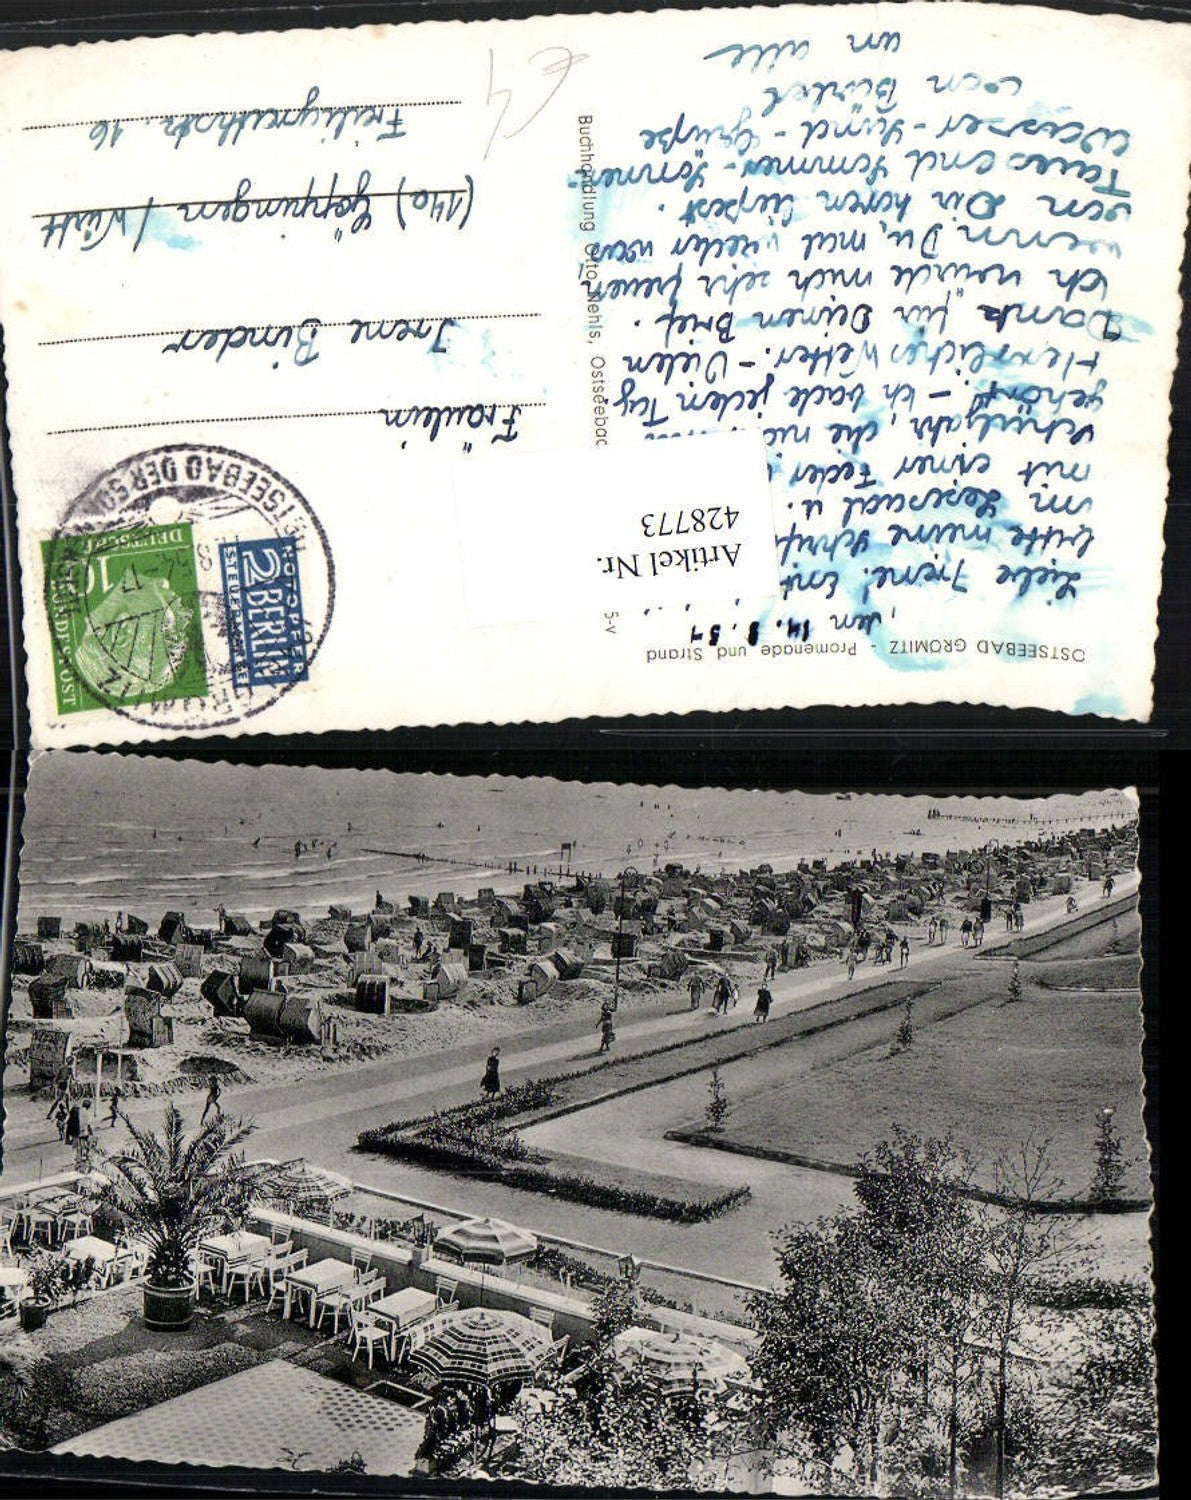 OSTSEEBAD GRÖMITZ - Promenade und Strand
, den 14. 8. 54
Liebe Irene!
bitte meine Schrift
im Lesesaal u.
mit einer Feder
Schuljahr, die
gehört. - Ich bade jeden Tag
Herrliches Wetter. - Vielen
Dank für Deinen Brief.
Ich würde mich sehr freuen
wenn Du, mal wieder was
von Dir hören läßest.
Tausend Sommer- Sonnen-
Wasser-Sand-Grüße
von Bärbel
an alle
Artikel Nr.
428773
Buchhandlung Otto Nehls, Ostseebad
5-v
Fräulein
Irene Binder
(14a) Göppingen / Württ
Freiligrathstr. 16
€4
GRÖMITZ
OSTSEEBAD DER
DEUTSCHE
BUNDESPOST
10
NOTOPFER
2 BERLIN
STEUERMARKE